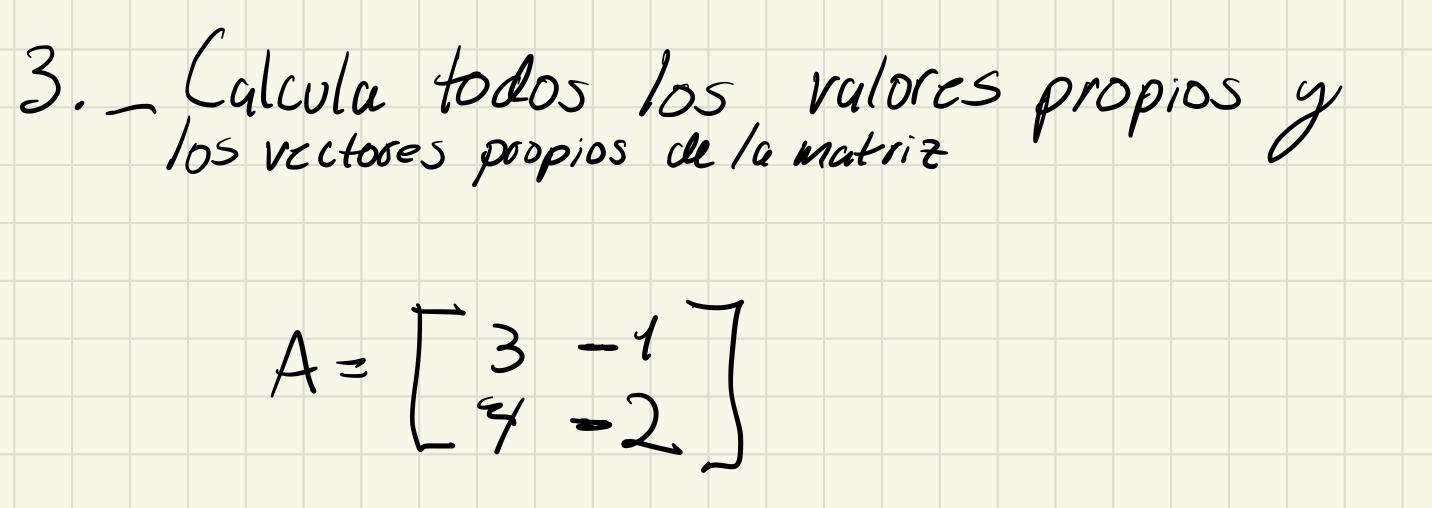 3._ Calcula todos los valores propios y
los vectores propios de la matriz
A = [ 3 -1
4 -2 ]